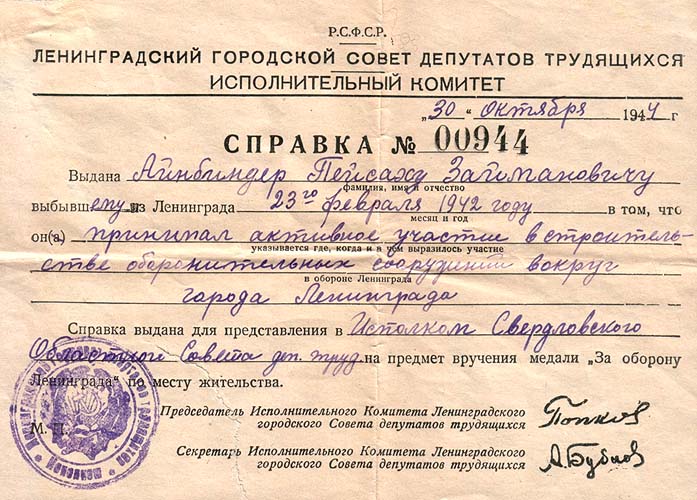 Р.С.Ф.С.Р.
ЛЕНИНГРАДСКИЙ ГОРОДСКОЙ СОВЕТ ДЕПУТАТОВ ТРУДЯЩИХСЯ
ИСПОЛНИТЕЛЬНЫЙ КОМИТЕТ
„30“ октября 1944 г
СПРАВКА № 00944
Выдана Айнбиндер Пейсаху Залмановичу
фамилия, имя и отчество
выбывшему из Ленинграда 23го февраля 1942 году в том, что
месяц и год
он(а) принимал активное участие в строитель-
указывается где, когда и в чем выразилось участие
стве оборонительных сооружений вокруг
в обороне Ленинграда
города Ленинграда
Справка выдана для представления в Исполком Свердловского
Областного Совета деп. труд. на предмет вручения медали „За оборону
Ленинграда“ по месту жительства.
Председатель Исполнительного Комитета Ленинградского
городского Совета депутатов трудящихся Попков
М. П.
Секретарь Исполнительного Комитета Ленинградского
городского Совета депутатов трудящихся А.Бубнов